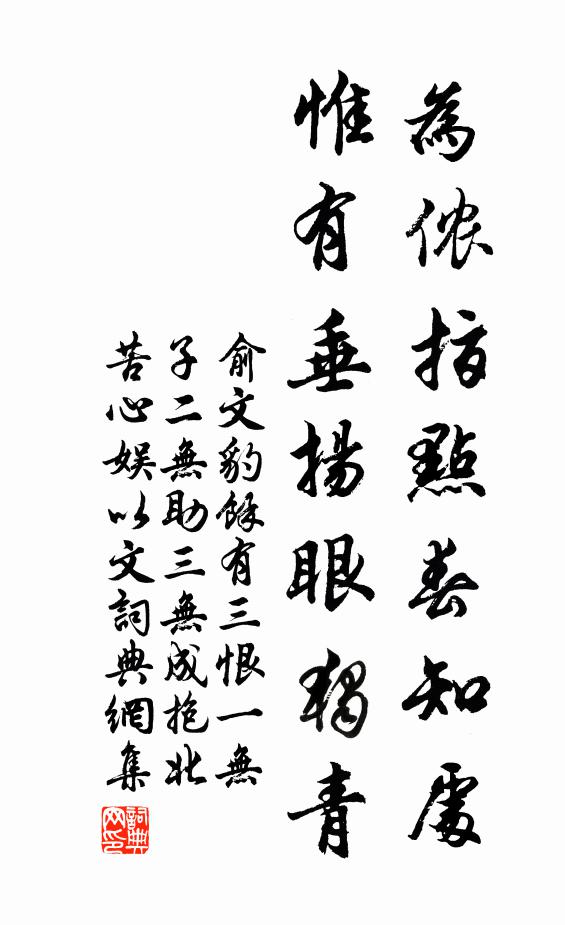 為侬指點春知處
惟有垂揚眼獨青
俞文豹餘有三恨一無
子二無助三無成抱此
苦心娱以文詞典網集
詞典
网印